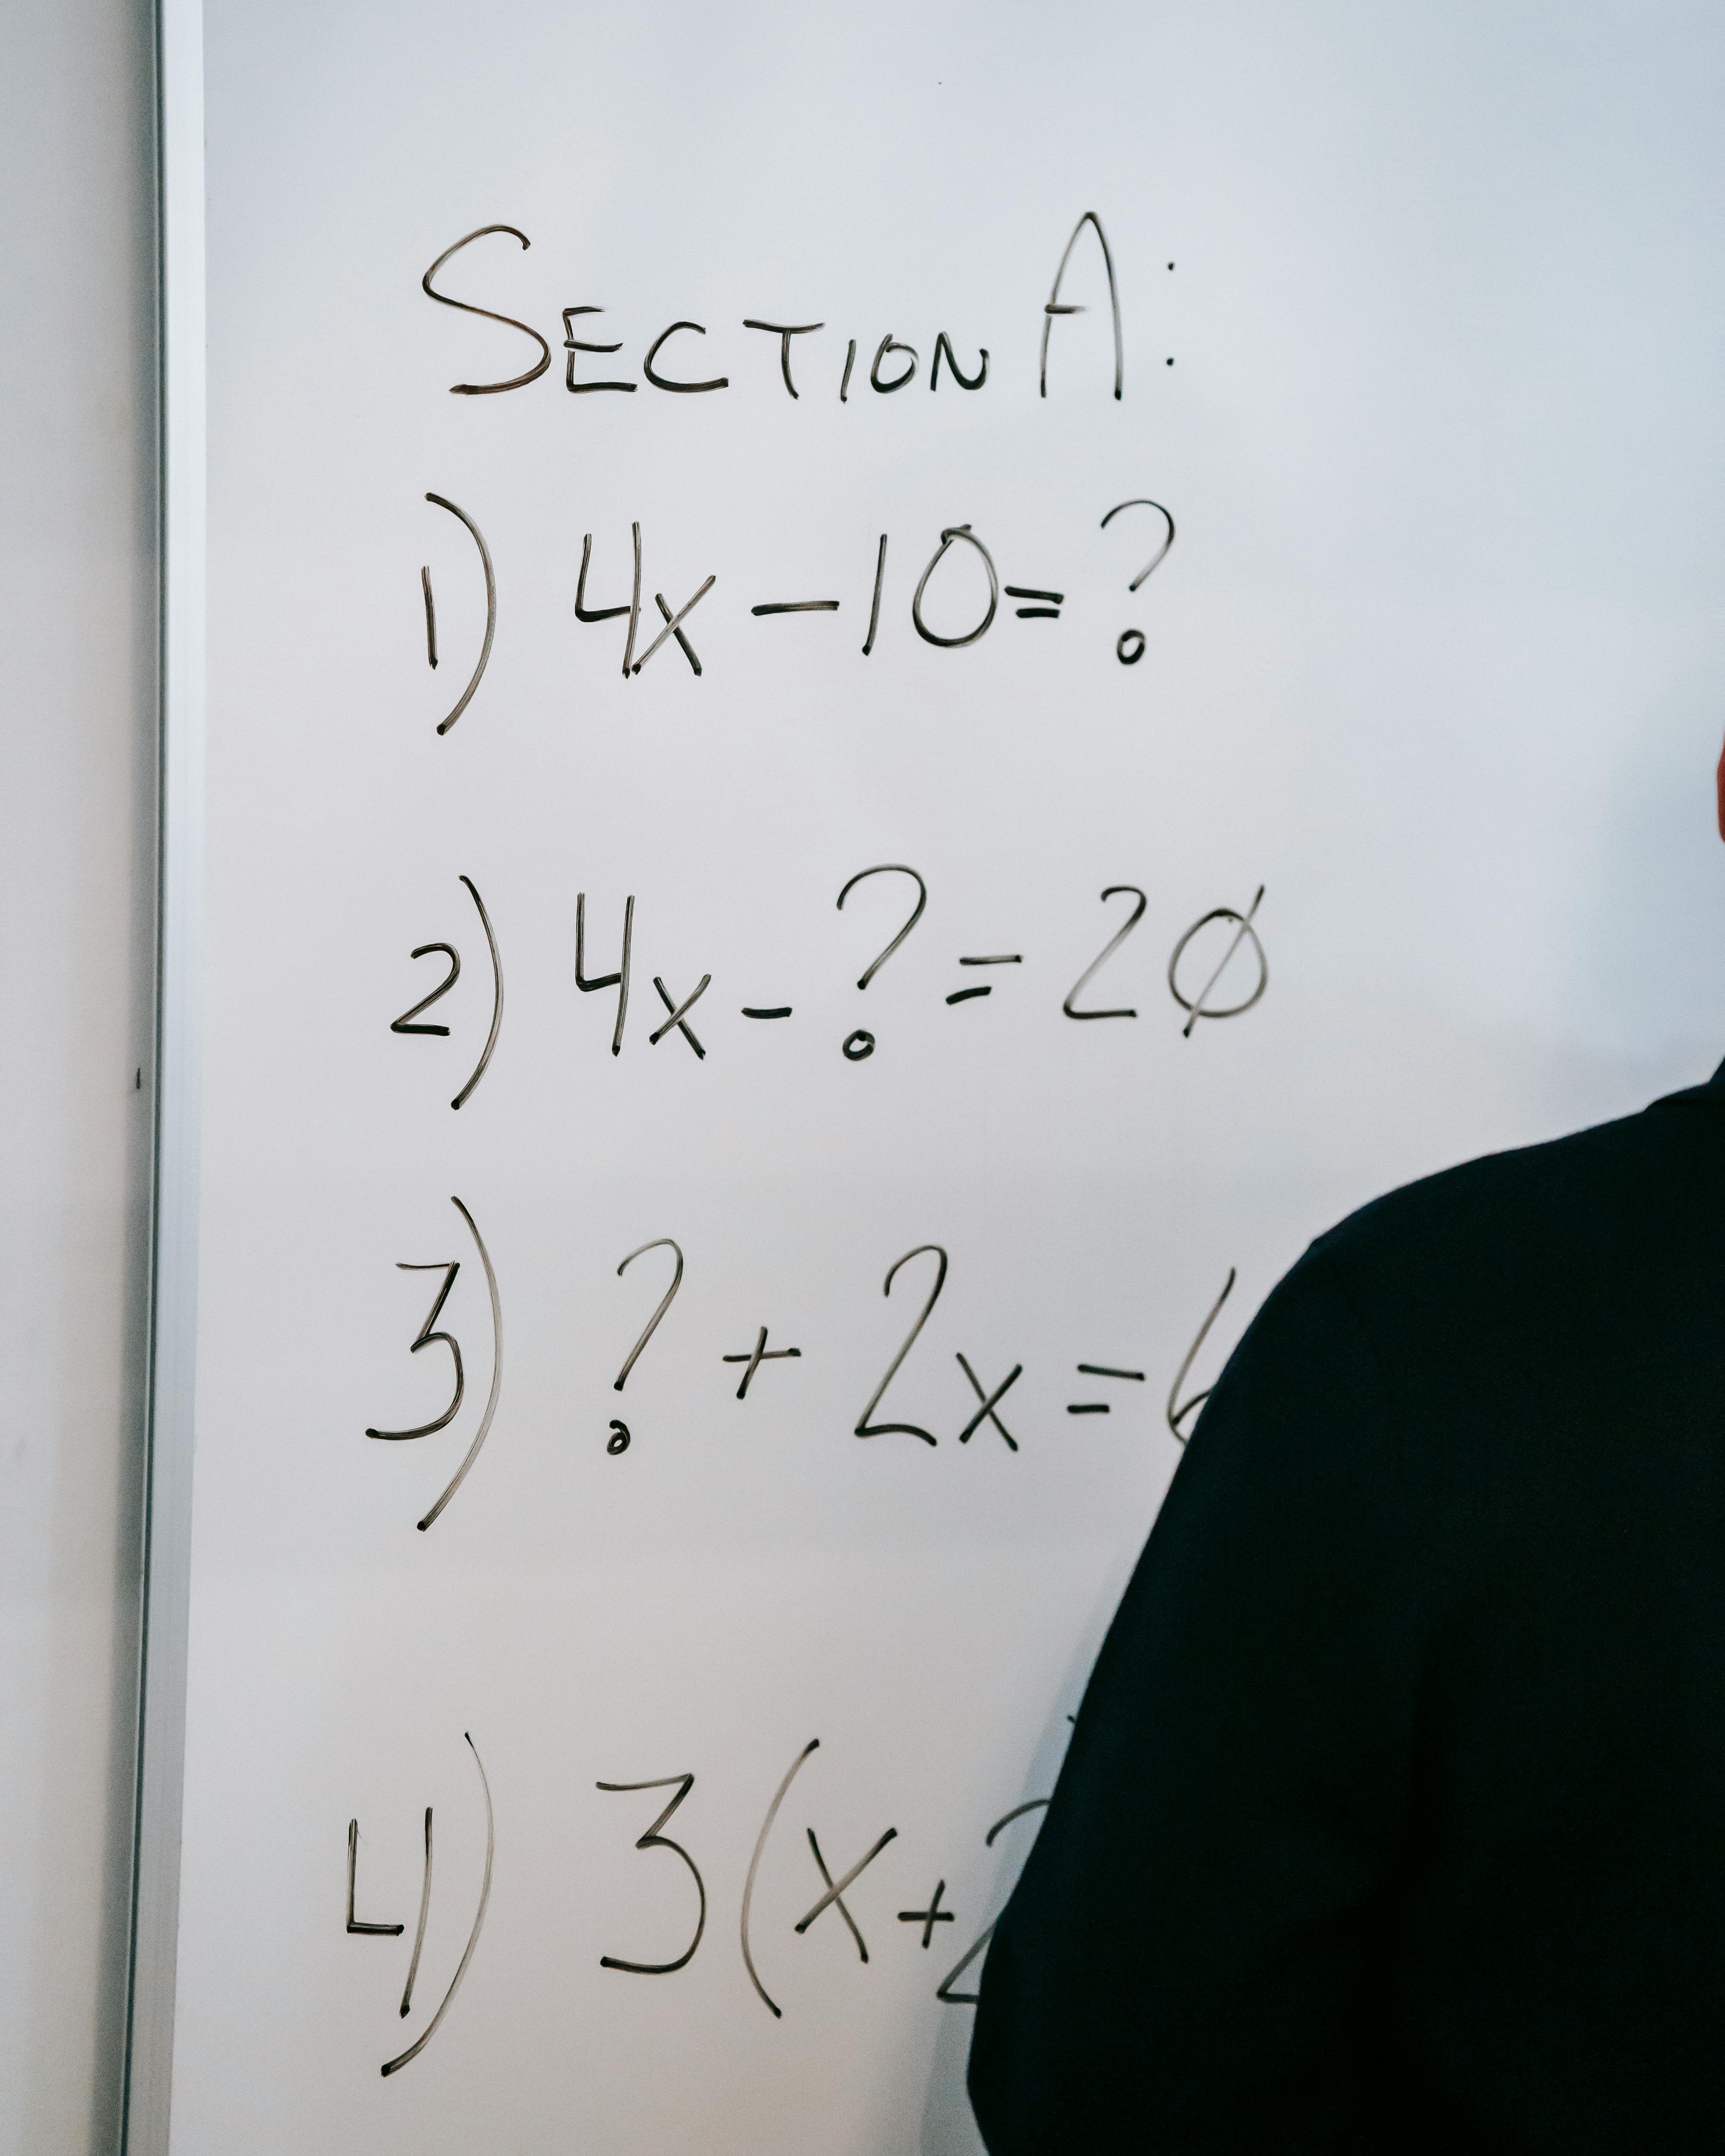 SECTION A:
1) 4x - 10 = ?
2) 4x - ? = 20
3) ? + 2x = 6
4) 3(x + 2